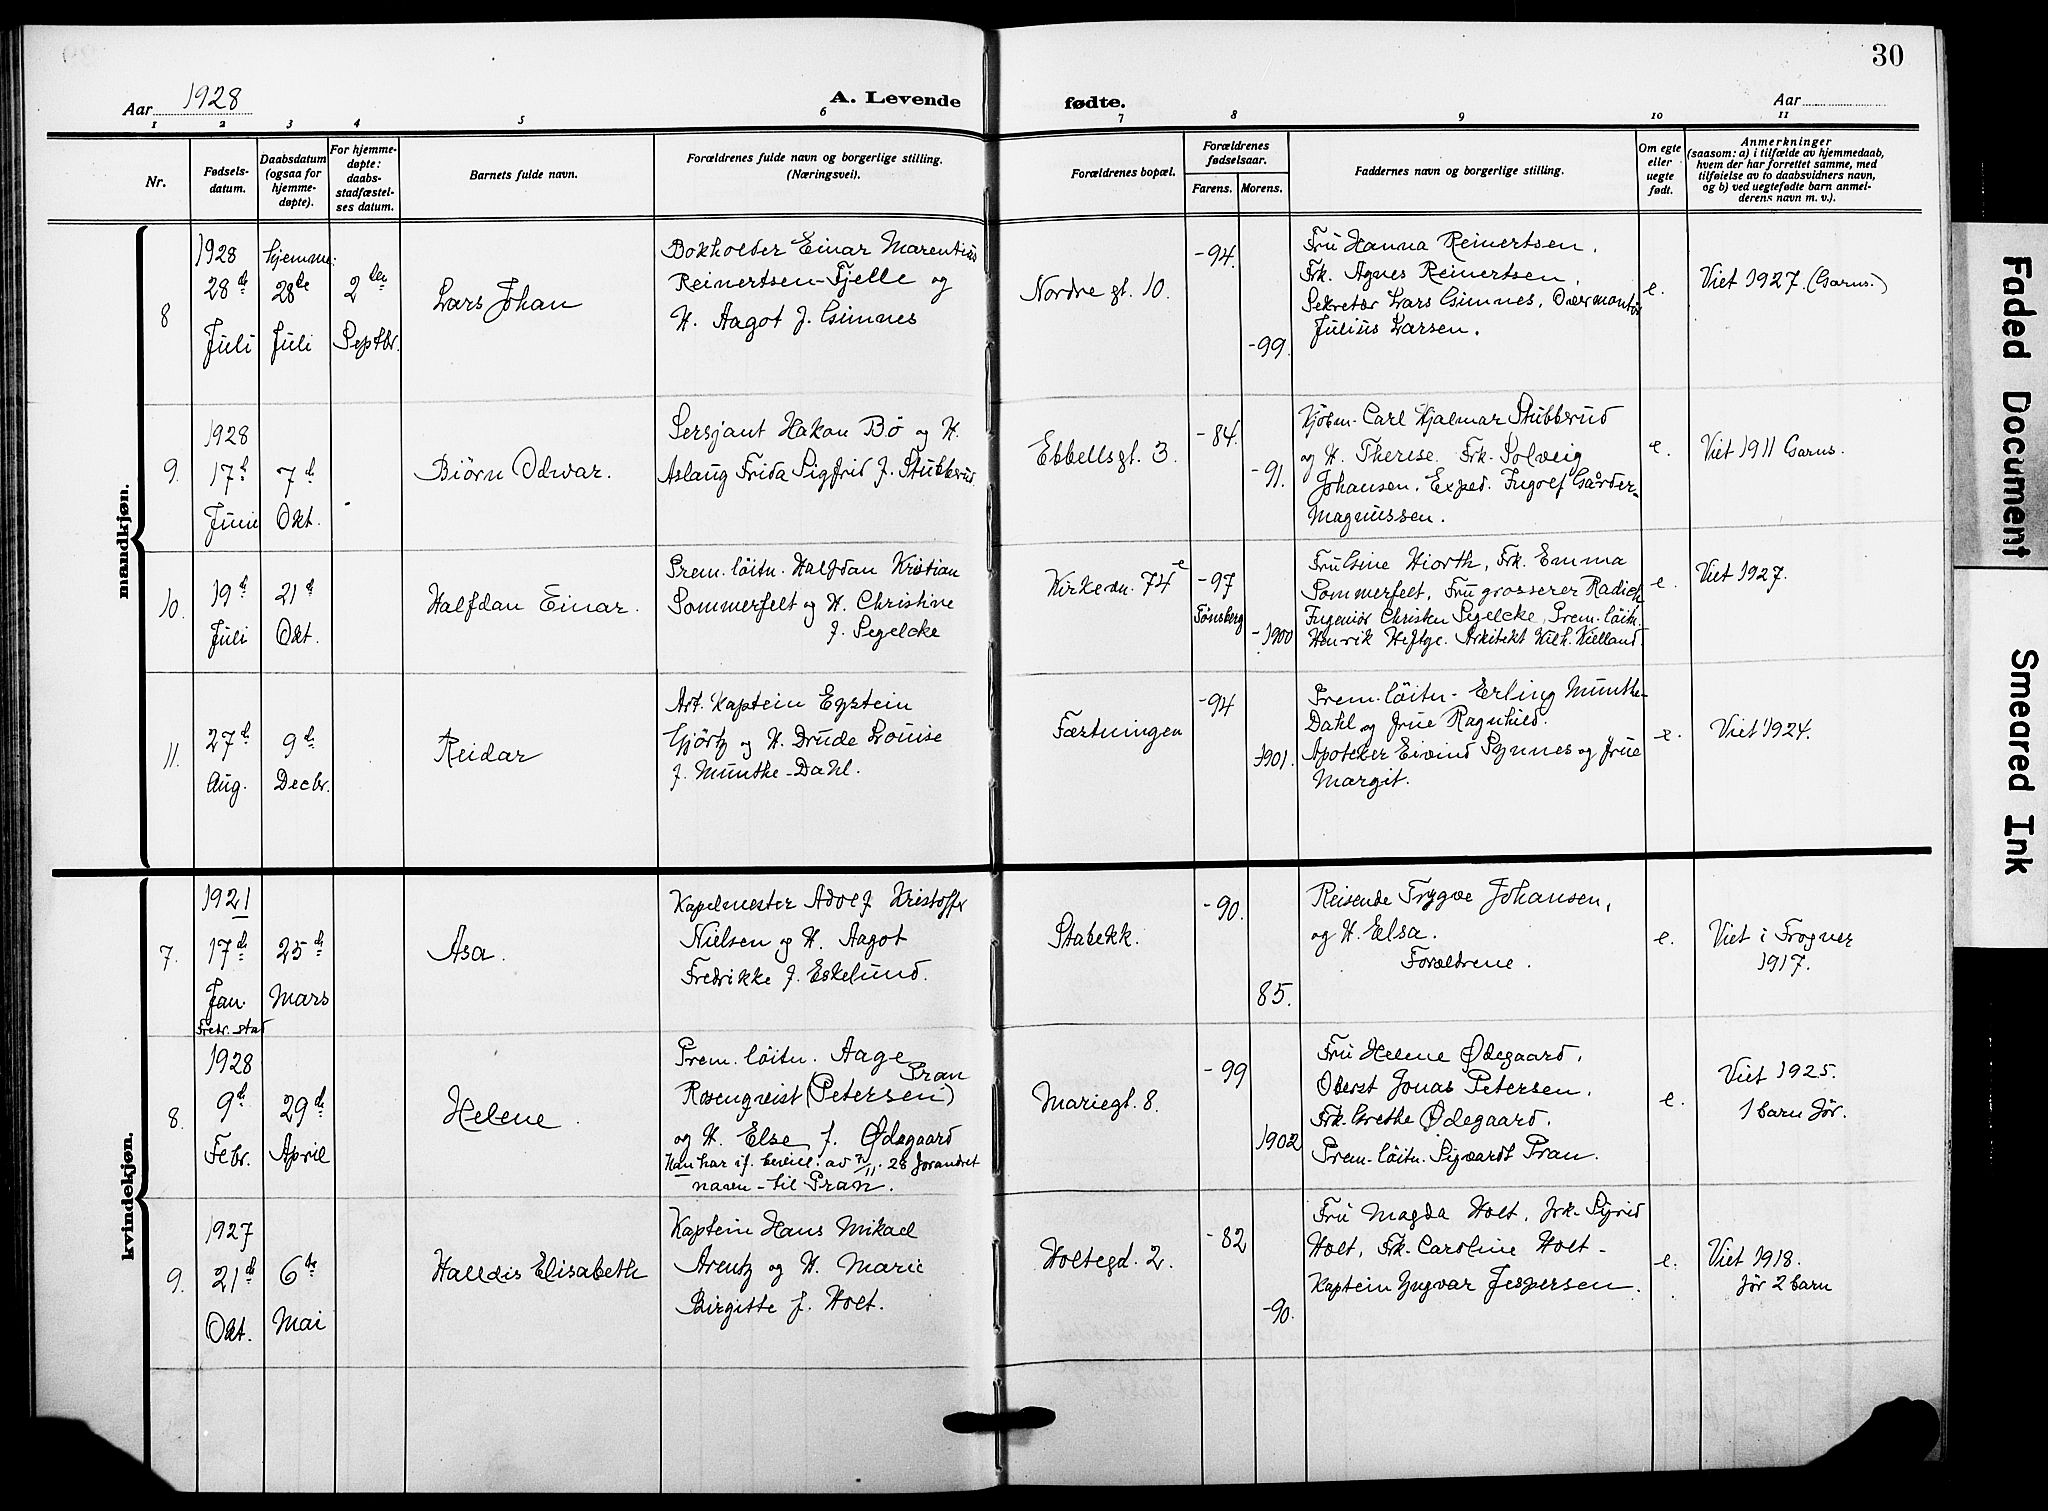 30
Aar 1928
A. Levende
fødte.
Aar
1 2 3 4 5 6 7 8 9 10 11
Nr.
Fødsels-
datum.
Daabsdatum
(ogsaa for
hjemme-
døpte).
For hjemme-
døpte:
daabs-
stadfæstel-
ses datum.
Barnets fulde navn.
Forældrenes fulde navn og borgerlige stilling.
(Næringsvei).
Forældrenes bopæl.
Forældrenes
fødselsaar.
Farens. Morens.
Faddernes navn og borgerlige stilling.
Om egte
eller
uegte
født.
Anmerkninger
(saasom: a) i tilfælde av hjemmedaab,
hvem der har forrettet samme, med
tilføielse av to daabsvidners navn,
og b) ved uegtefødte barn anmel-
derens navn m. v.).
mandkjøn.
8
1928
28de
Juli
hjemme:
28de
Juli
2den
Septbr.
Lars Johan
Bokholder Einar Marentius
Reinertsen-Fjelle og
H. Aagot f. Gimnes
Nordre gt. 10.
-94.
-99.
Fru Hanna Reinertsen.
Frk. Agnes Reinertsen.
Sekretær Lars Gimnes,
Julius Larsen.
e.
Viet 1927. (Garns.)
9.
1928
17d
Juni
7d
Okt.
-
Biörn Odvar.
Sersjant Hakon Bö og H.
Aslaug Frida Sigfrid f. Stubberud.
Ebbellsgt. 3.
-84.
-91.
Kjöbm. Carl Hjalmar Stubberud
og H. Therese. Frk. Solveig
Johansen, Exped. Ingolf Gårder-
Magnussen.
e.
Viet 1911 Garns.
10.
19d
Juli
21d
Okt.
Halfdan Einar.
Prem. löitn. Halfdan Kristian
Sommerfelt og H. Christine
f. Segelcke
Kirkevn. 74e
-97
Tönsberg
-1900
Fru Gine Hiorth, Frk. Emma
Sommerfelt, Fru grosserer Radich
Ingeniör Christen Segelcke, Prem. löitn.
Henrik Heftye. Arkitekt Wilh. Kielland.
e.
Viet 1927.
11.
27d
Aug.
9d
Decbr.
Reidar
Art. Kaptein Eystein
Hjörtz og H. Drude Louise
f. Munthe-Dahl.
Fæstningen
-94
-1901.
Prem. löitn. Erling Munthe-
Dahl og frue Ragnhild.
Apoteker Eivind Synnes og frue
Margit.
e.
Viet 1924.
kvindekjøn.
7.
1921
17d
Jan.
Fredr. stad
25d
Mars
Asa.
Kapelmester Adolf Kristoffer
Nielsen og H. Aagot
Fredrikke f. Eskelund.
Stabekk.
-90.
85.
Reisende Trygve Johansen,
og H. Elsa.
Forældrene.
e.
Viet i Frogner
1917.
8.
1928
9d
Febr.
29d
April
Helene.
Prem. löitn. Aage
Pran
Rosenqvist (Petersen)
og H. Else f. Ødegaard
Han har if. bevill. av 7/11. 28 forandret
navn - til Pran.
Mariegt. 8.
-99
1902
Fru Helene Ødegaard.
Oberst Jonas Petersen.
Frk. Grethe Ødegaard.
Prem-löitn. Sigvardt Pran.
e.
Viet 1925.
1 barn før.
9.
1927
21d
Okt.
6te
Mai
Halldis Elisabeth
Kaptein Hans Mikael
Arentz og H. Marie
Birgitte f. Holt.
Holtegd. 2.
-82
-90.
Fru Magda Holt, frk. Sigrid
Holt, Frk. Caroline Holt-
Kaptein Yngvar Jespersen.
e.
Viet 1918.
før 2 barn
Faded Document
Smeared Ink